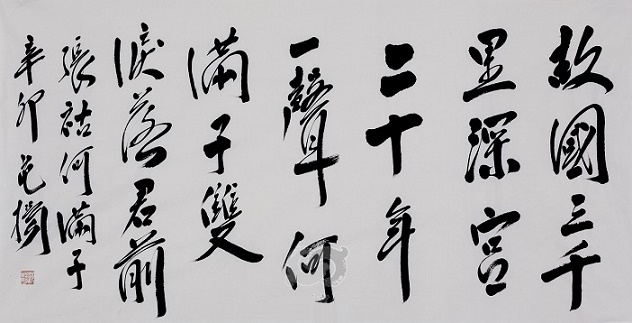 故國三千
里深宮
二十年
一聲何
滿子雙
淚落君前
張祜何滿子
辛卯